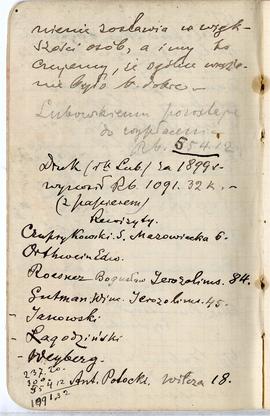 nienie zostawia w więk-
szości osób, a inny to
czujemy, że ogólne wraże-
nie było b. dobre. –
Lubowskiemu pozostaje
do wypłacenia
Rb. 554.12
Druk (Lub) za 1899 r.
wynosił Rb. 1091.32 k. –
(z papierem)
Rewizyty.
Czaprykowski S. Mazowiecka 6.
Orthwein Edw.
Roesner Bogusław Jerozolims. 84.
Gutman Wim. Jerozolims. 45.
- Janowski
- Łagodziński
- Weyberg.
237.20.
300
554.12
1091.32
Ant. Potocki. Wilcza 18.